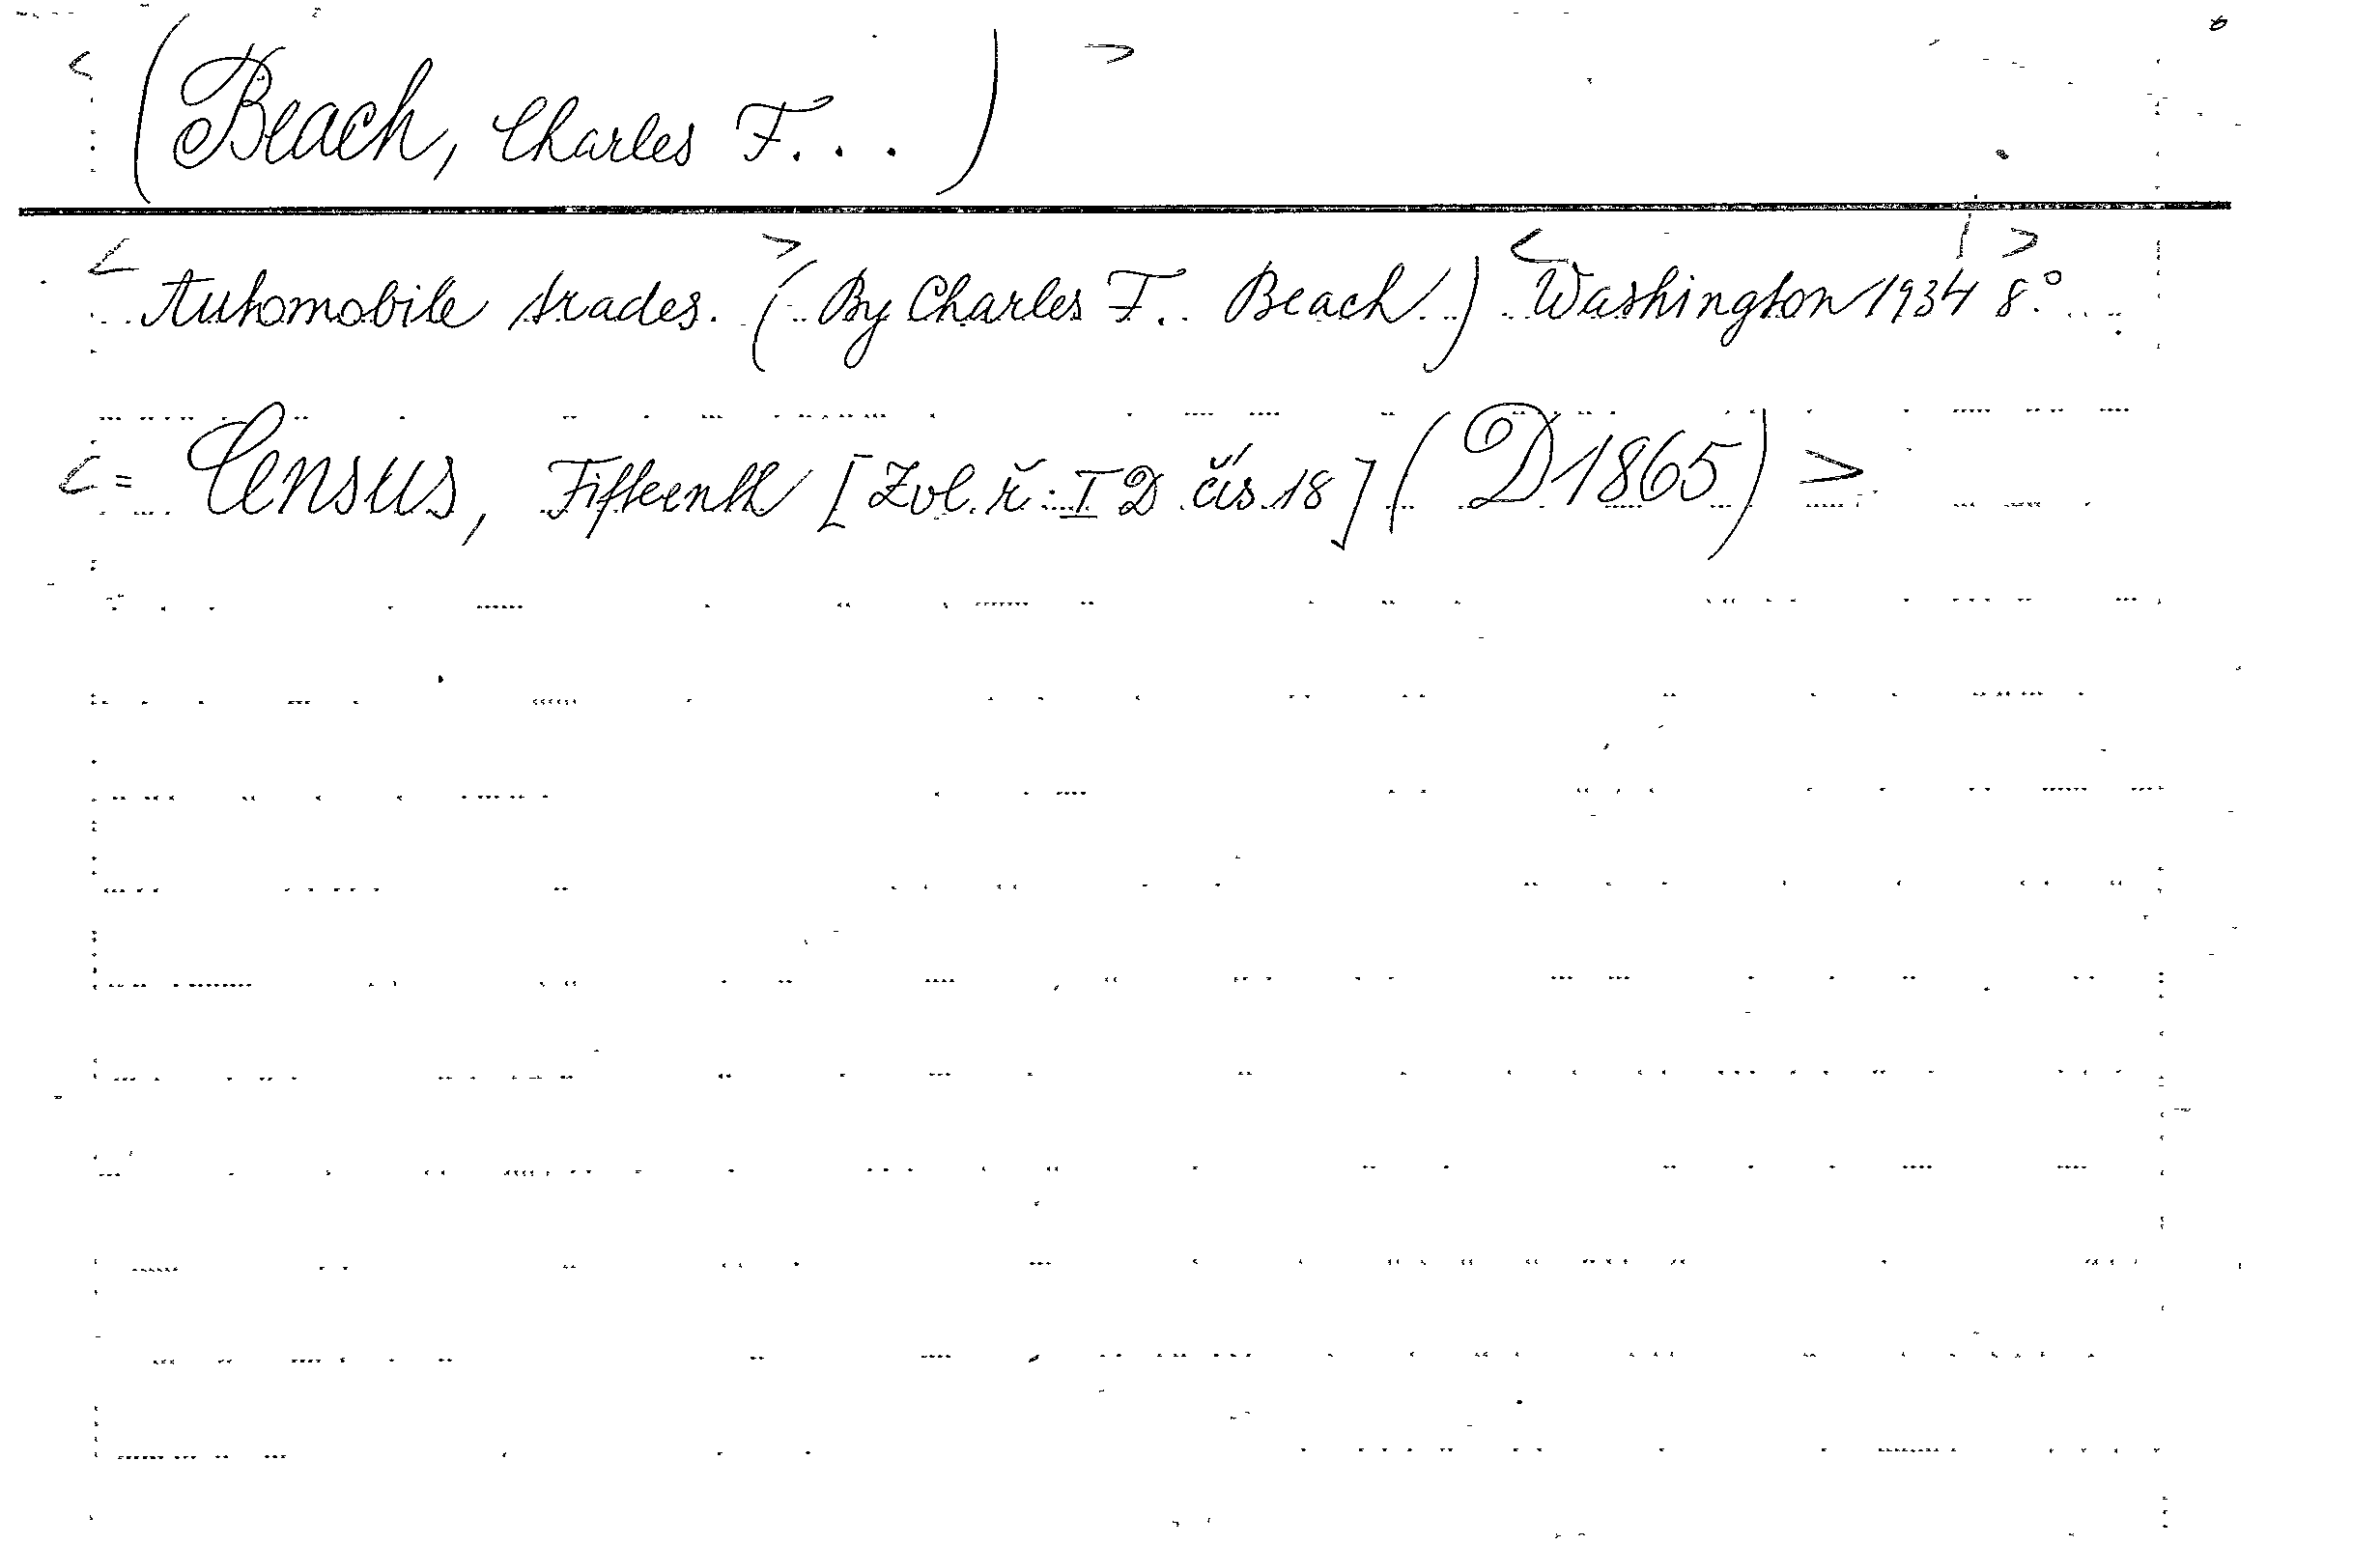 < (Beach, Charles F...) >
< Automobile trades. > (By Charles F.. Beach.) < Washington 1934 | > 8°.
< = Census, Fifteenth [Zvl. ř.: I D čís. 18] (D 1865) >